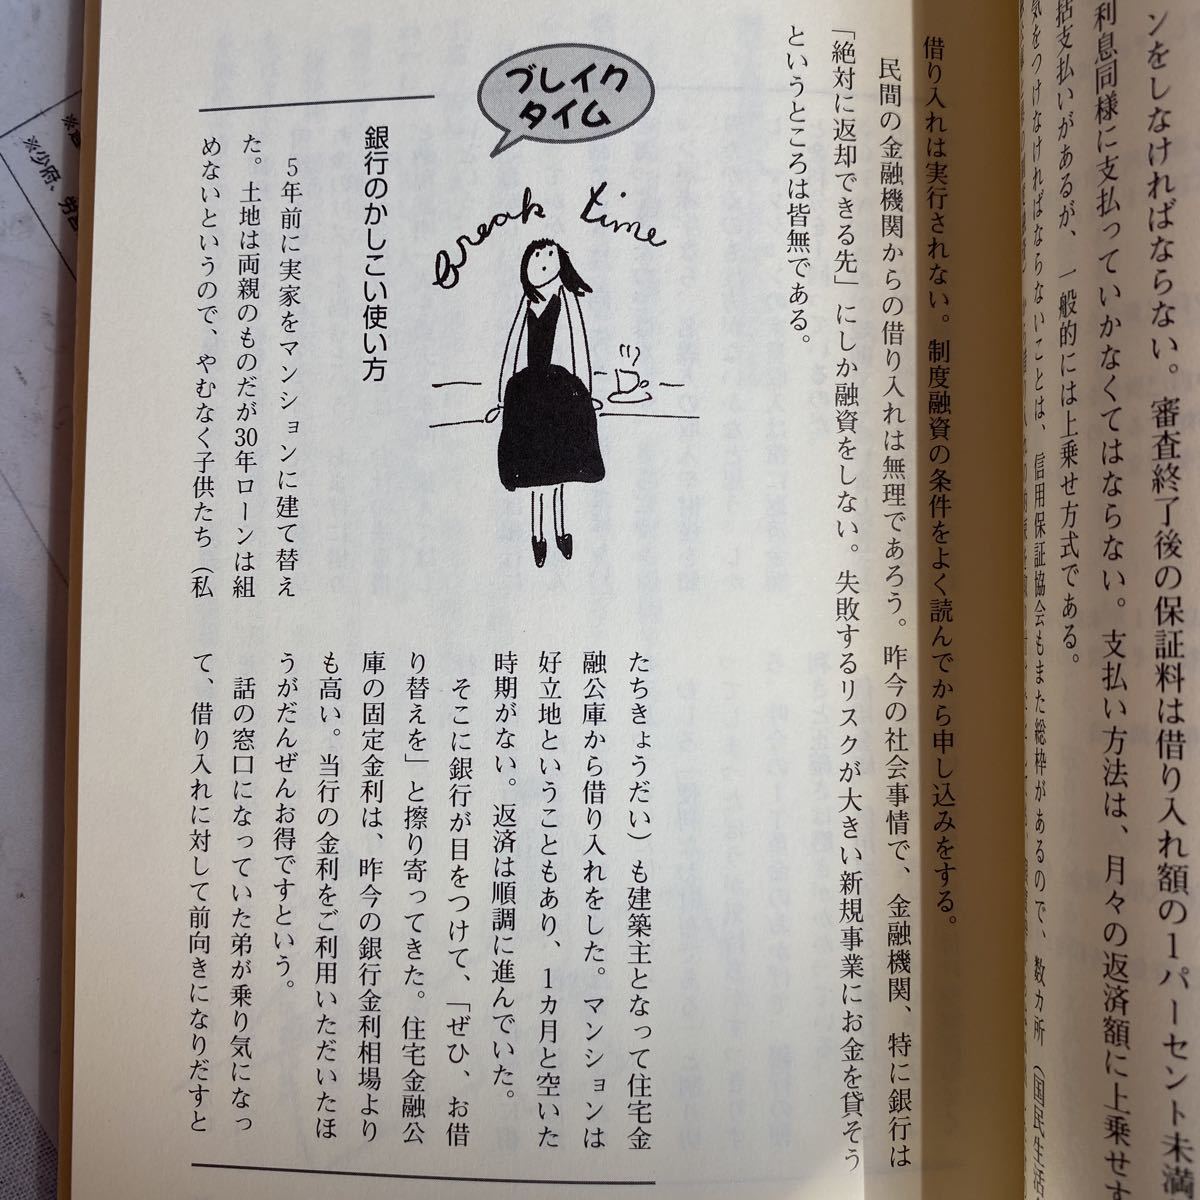 ンをしなければならない。審査終了後の保証料は借り入れ額の1パーセント未満
利息同様に支払っていかなくてはならない。支払い方法は、月々の返済額に上乗せす
括支払いがあるが、一般的には上乗せ方式である。
気をつけなければならないことは、信用保証協会もまた総枠があるので、数カ所（国民生活
借り入れは実行されない。制度融資の条件をよく読んでから申し込みをする。
民間の金融機関からの借り入れは無理であろう。昨今の社会事情で、金融機関、特に銀行は
「絶対に返却できる先」にしか融資をしない。失敗するリスクが大きい新規事業にお金を貸そう
というところは皆無である。
ブレイク
タイム
break time
銀行のかしこい使い方
5年前に実家をマンションに建て替え
た。土地は両親のものだが30年ローンは組
めないというので、やむなく子供たち（私
たちきょうだい）も建築主となって住宅金
融公庫から借り入れをした。マンションは
好立地ということもあり、1カ月と空いた
時期がない。返済は順調に進んでいた。
そこに銀行が目をつけて、「ぜひ、お借
り替えを」と擦り寄ってきた。住宅金融公
庫の固定金利は、昨今の銀行金利相場より
も高い。当行の金利をご利用いただいたほ
うがだんぜんお得ですという。
話の窓口になっていた弟が乗り気になっ
て、借り入れに対して前向きになりだすと